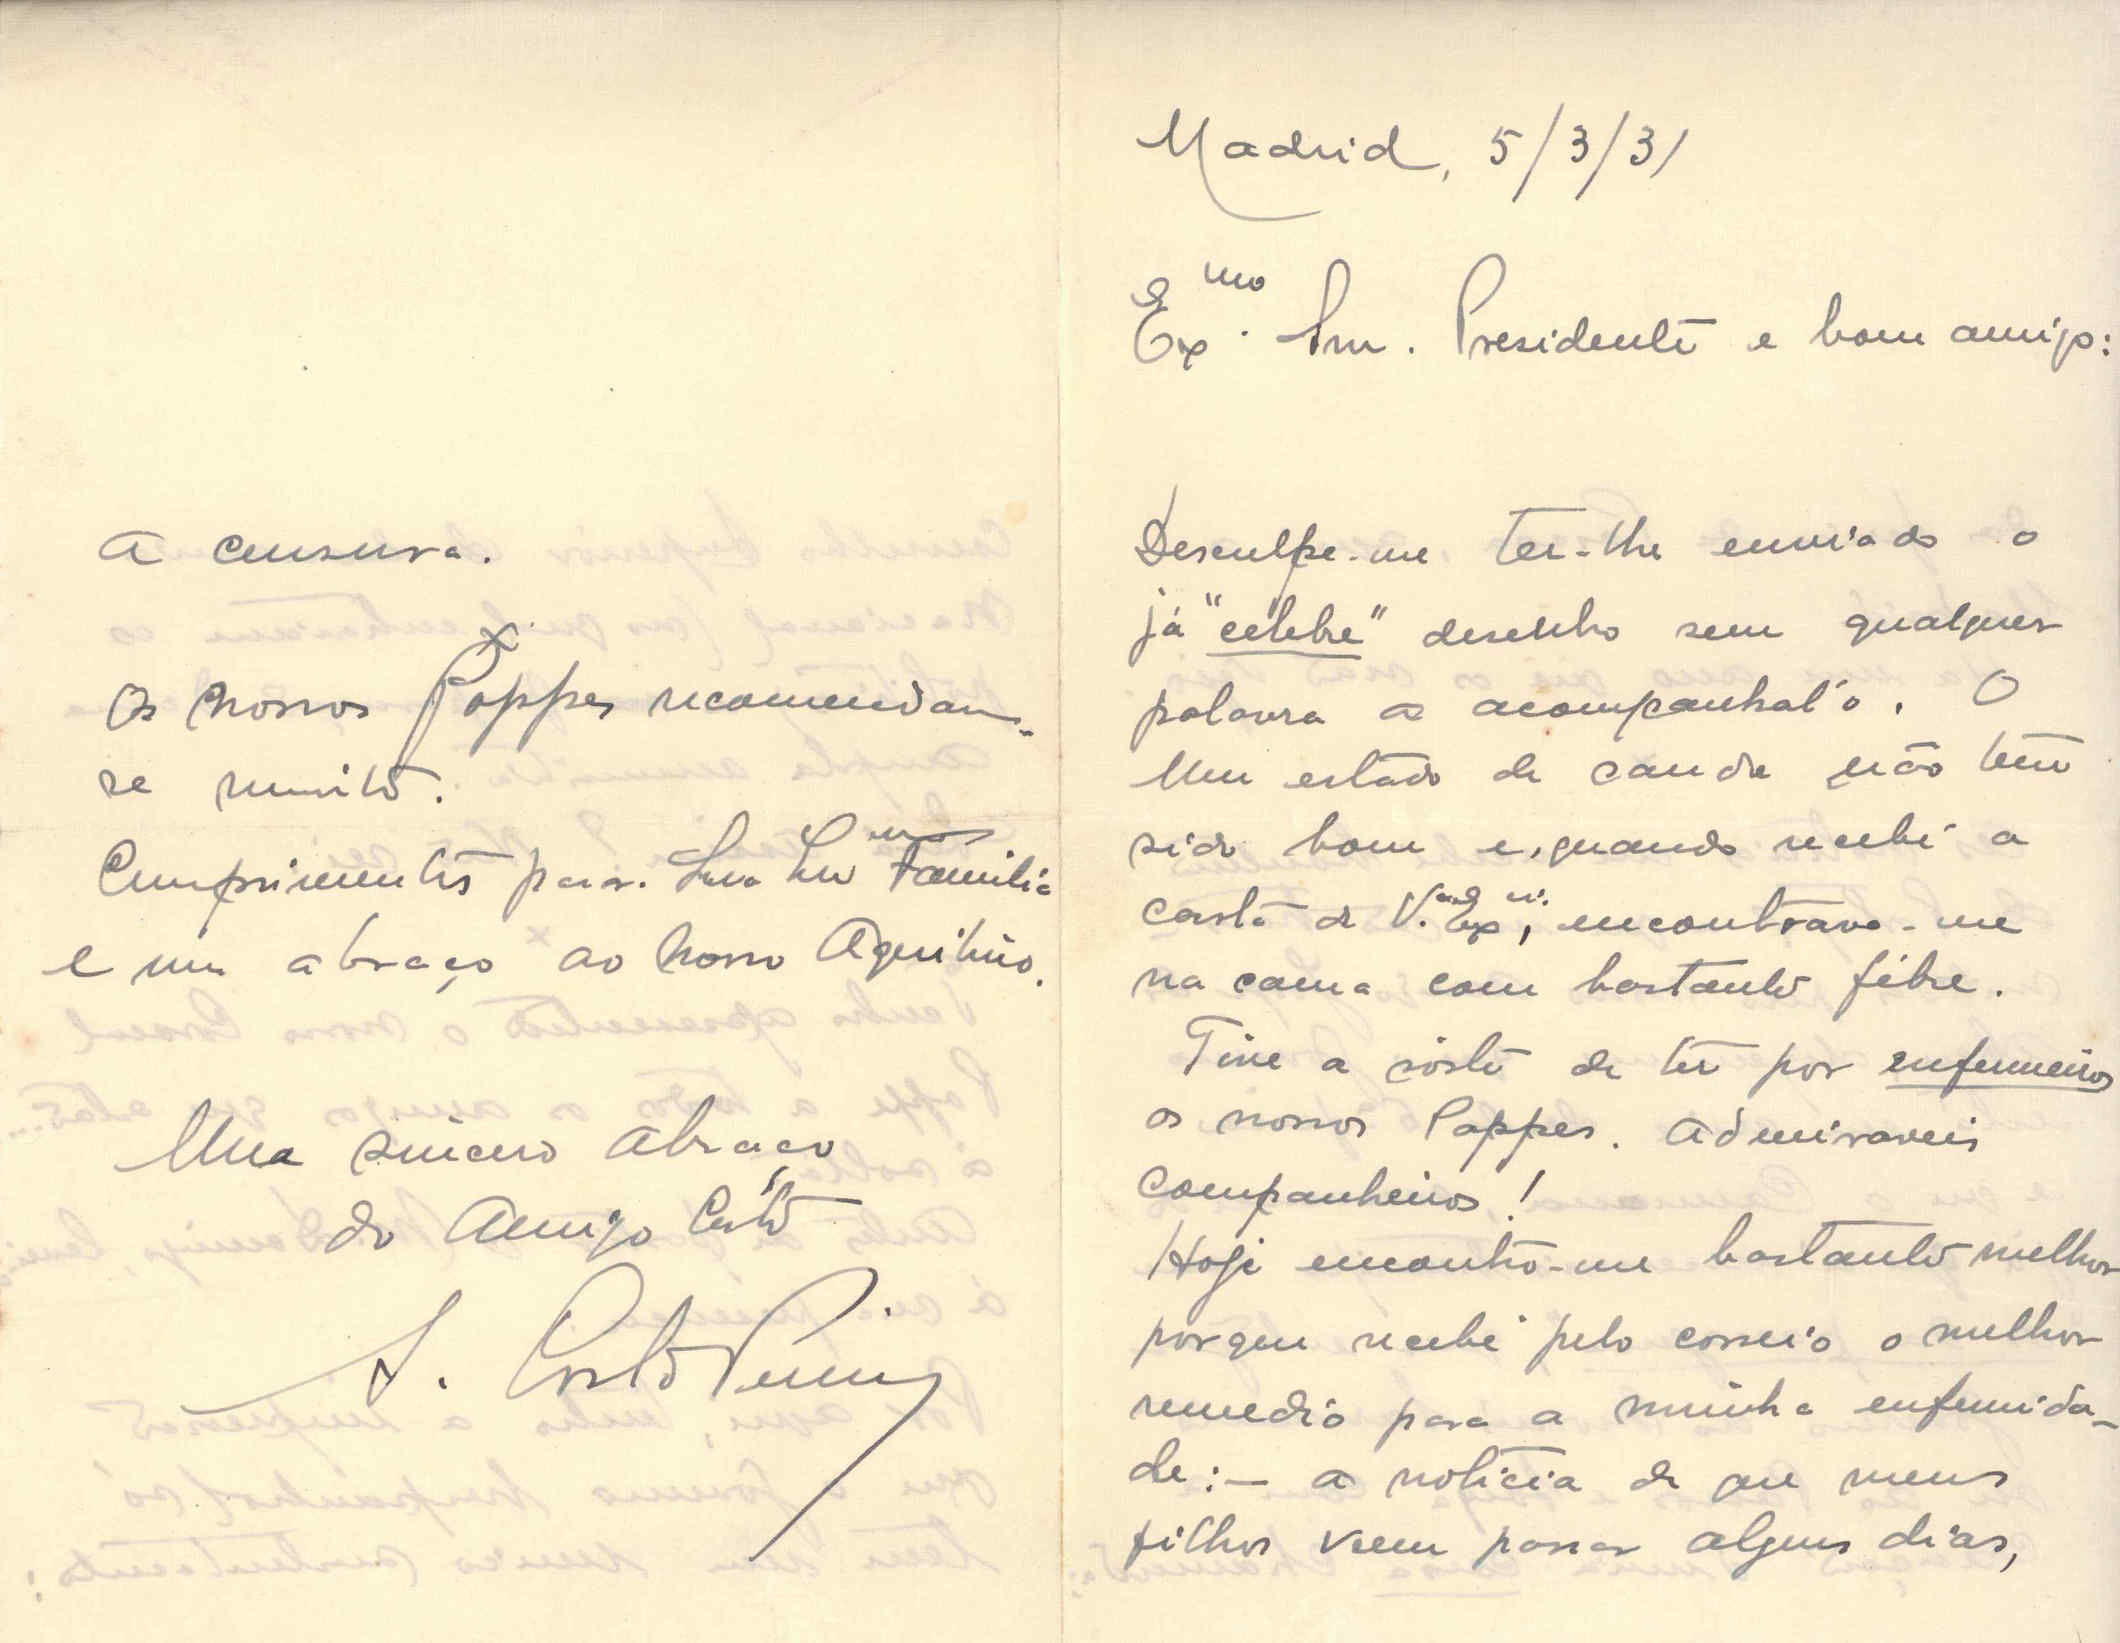 Madrid, 5/3/31
Ex.mo Snr. Presidente e bom amigo:
Desculpe-me ter-lhe enviado o
já "celebre" desenho sem qualquer
palavra a acompanhal'o. O
meu estado de saude não tem
sido bom e, quando recebi a
carta de V. Ex.cia, encontrava-me
na cama com bastante fébre.
Tive a sórte de ter por enfermeiros
os nossos Poppes. Admiraveis
companheiros!
Hoje encontro-me bastante melhor
porque recebi pelo correio o melhor
remedio para a minha enfermida-
de: — a noticia de que meus
filhos veem passar alguns dias,
a censura.
x
Os nossos Poppes recomendam-
se muito.
Cumprimentos para Sua Ex.ma Familia
e um abraço ao nosso Aquilino.
Um sincero abraço
do Amigo Certo
A. Cortez Pinto